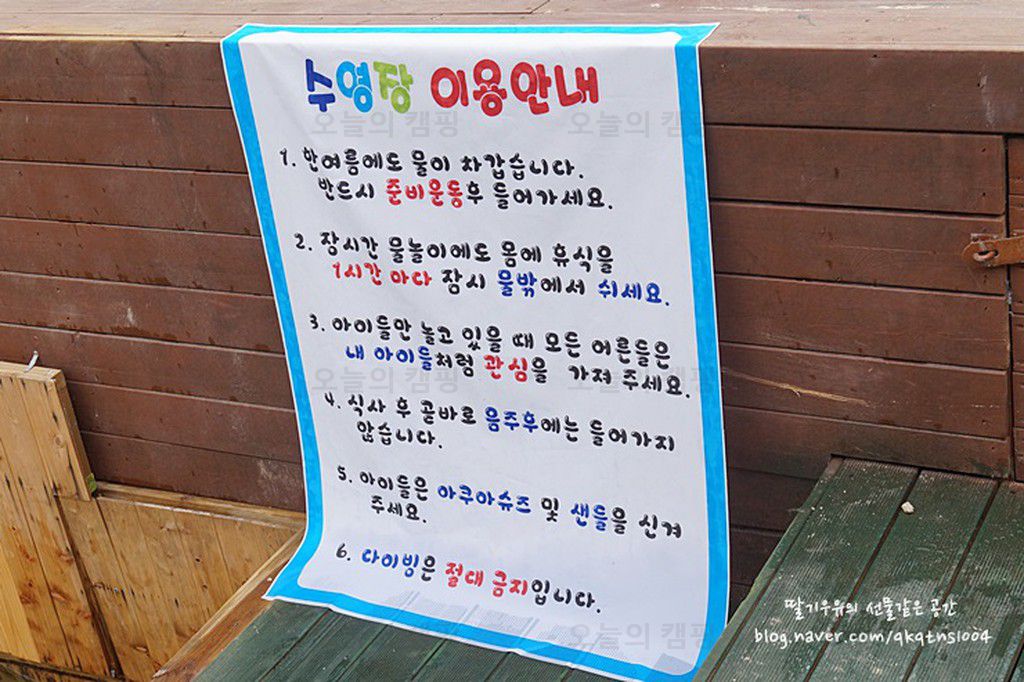 수영장 이용안내
오늘의 캠핑 오늘의 캠핑
1. 한여름에도 물이 차갑습니다.
반드시 준비운동후 들어가세요.
2. 장시간 물놀이에도 몸에 휴식을
1시간 마다 잠시 물밖에서 쉬세요.
3. 아이들만 놀고 있을 때 모든 어른들은
내 아이들처럼 관심을 가져 주세요.
오늘의 캠핑 오늘의 캠핑
4. 식사 후 곧바로 음주후에는 들어가지
않습니다.
5. 아이들은 아쿠아슈즈 및 샌들을 신겨
주세요.
6. 다이빙은 절대 금지입니다.
오늘의 캠핑
딸기우유의 선물같은 공간
blog.naver.com/qkqtnsl004